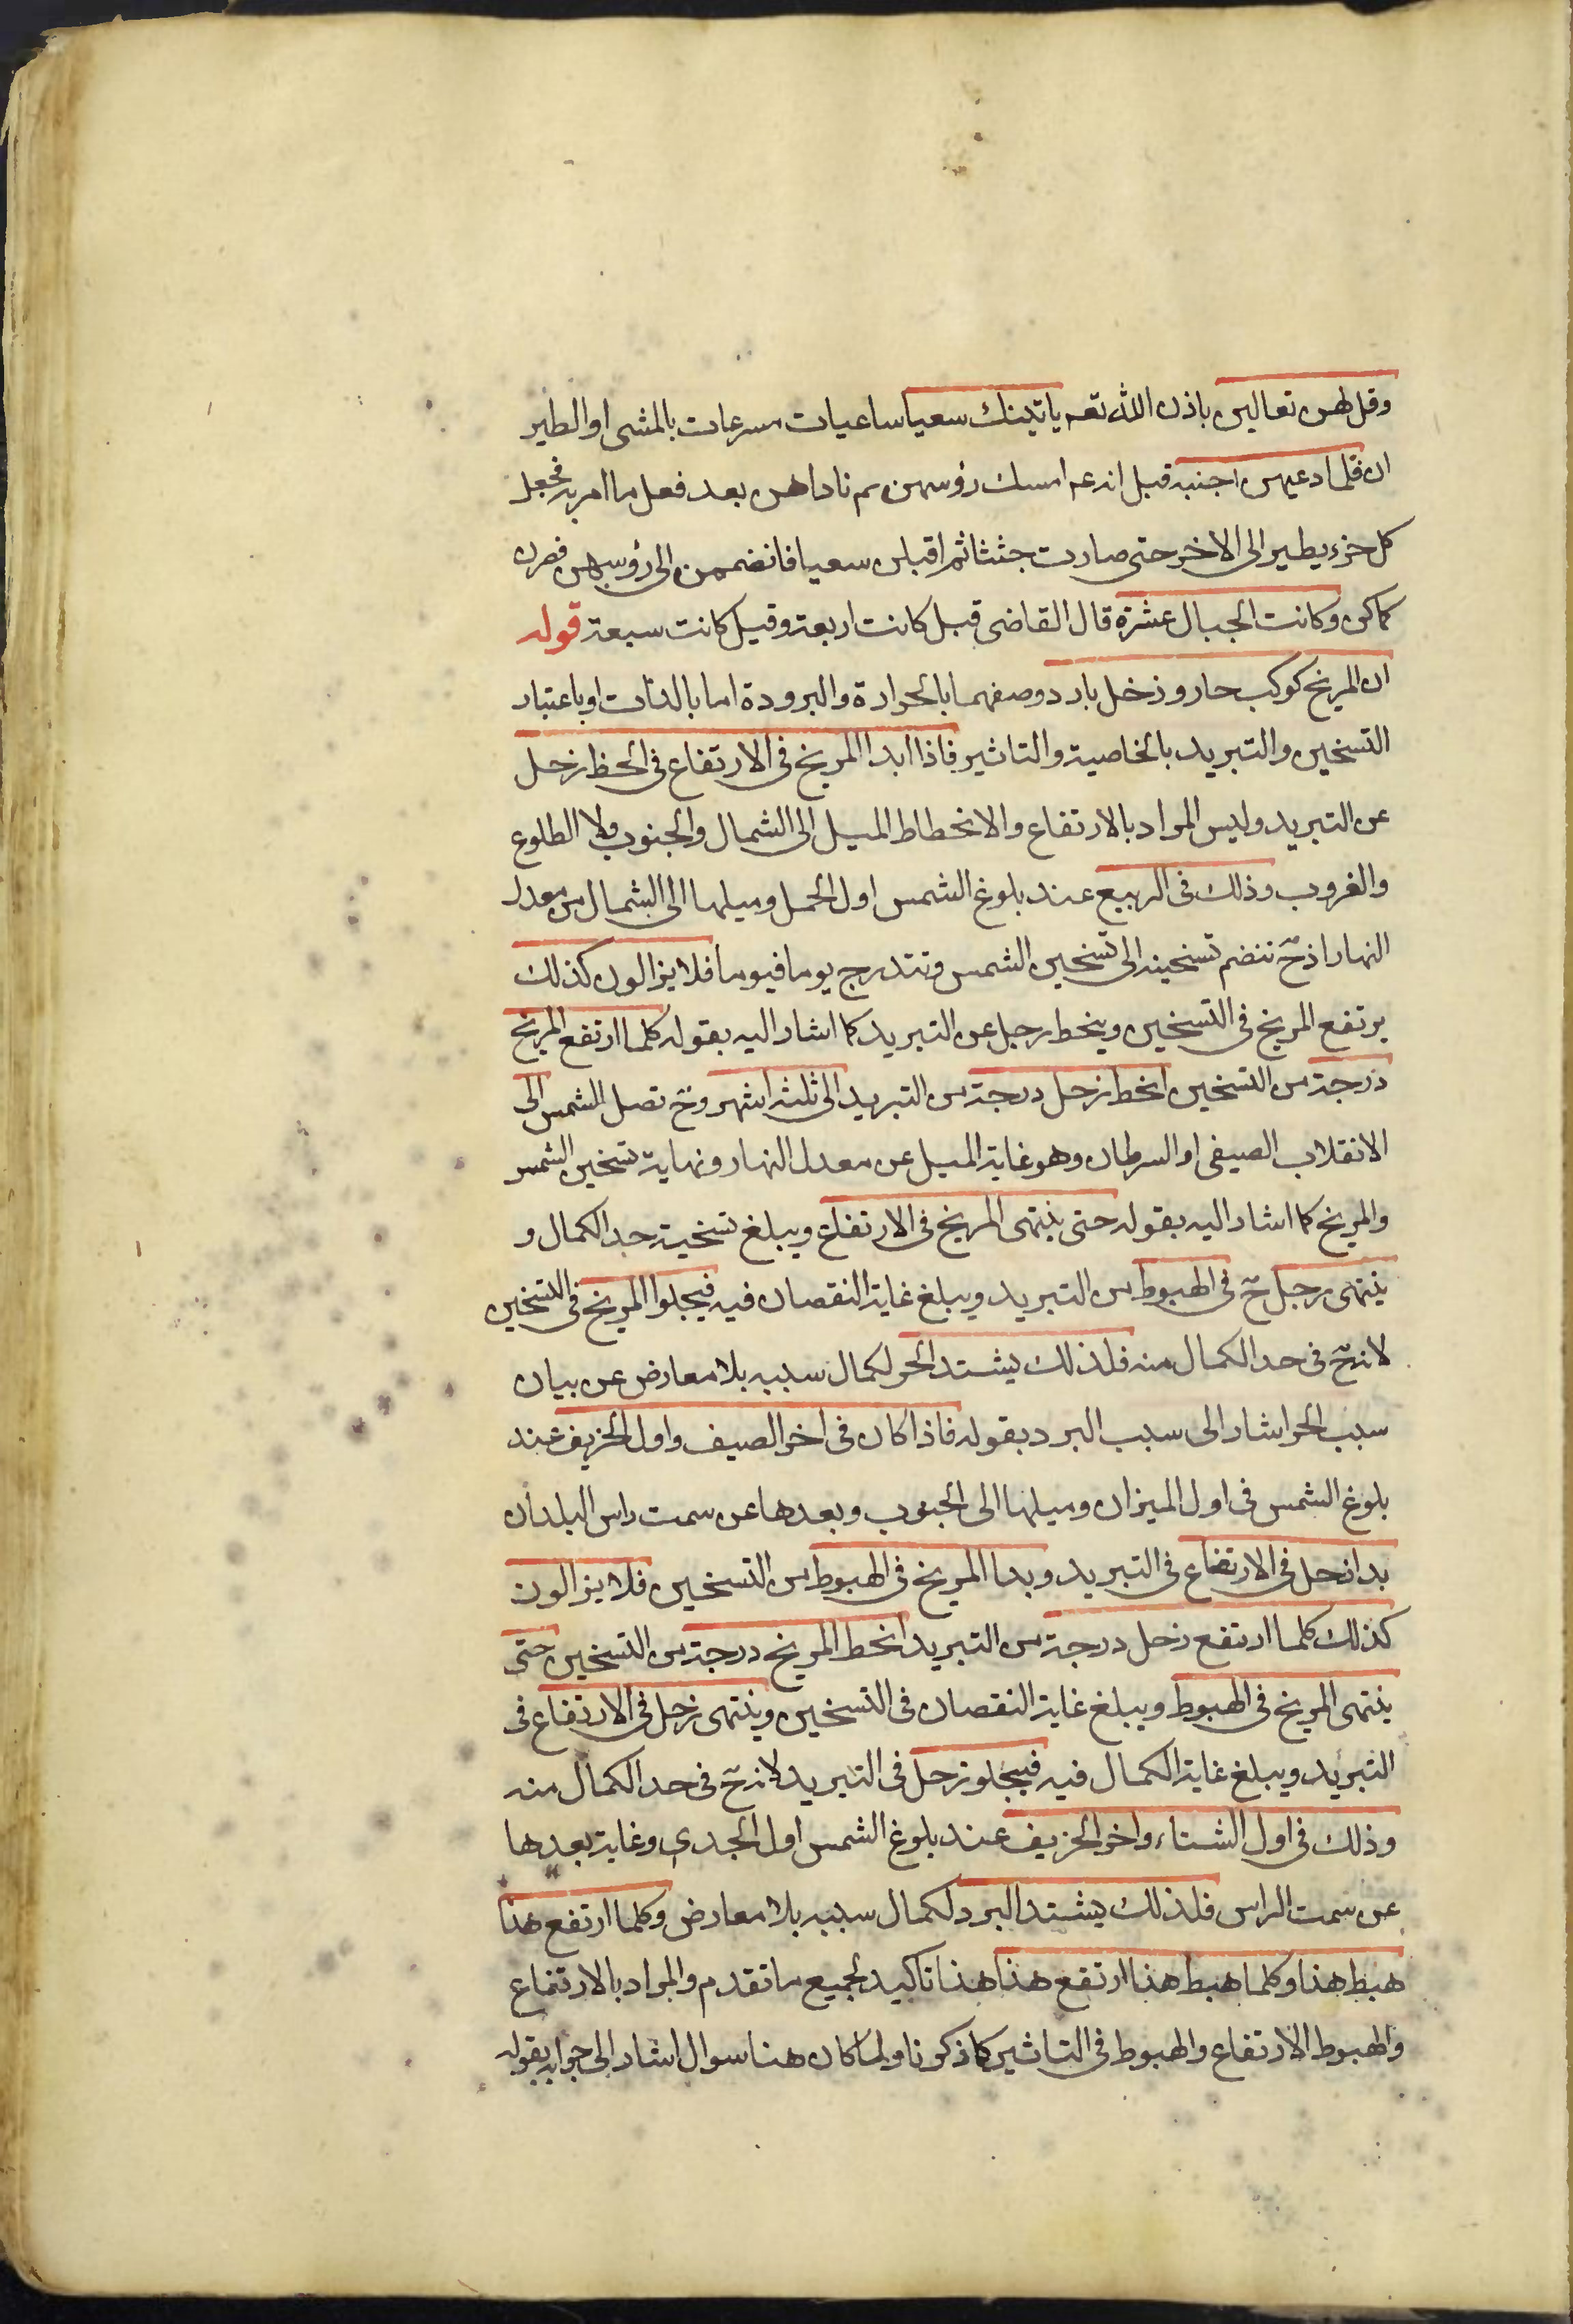 وقل لهن تعالين باذن الله تعه ياتينك سعيا ساعيات مسرعات بالمشى او الطير
ان فلما دعيهن اجنبه قيل انه عم امسك رؤسهن ثم ناداهن بعد فعل ما امر به فجعل
كل جزء يطير الى الاخر حتى صارت جثثا ثم اقبلن سعيا فانضممن الى رؤسهن فصرن
كما كن وكانت الجبال عشرة قال القاضى قيل كانت اربعة وقيل كانت سبعة قوله
ان المريخ كوكب حار وزحل بارد وصفهما بالحرارة والبرودة اما بالذات او باعتبار
التسخين والتبريد بالخاصية والتاثير فاذا ابدا المريخ فى الارتفاع فى الحظ زحل
عن التبريد وليس المراد بالارتفاع والانحطاط الميل الى الشمال والجنوب ولا الطلوع
والغروب وذلك فى الربيع عند بلوغ الشمس اول الحمل وميلها الى الشمال من معدل
النهار اذ ح تنضم تسخينه الى تسخين الشمس وتتدرج يوما فيوما فلا يزالون كذلك
يرتفع المريخ فى التسخين وينحط زحل عن التبريد كما اشار اليه بقوله كلما ارتفع المريخ
درجة من التسخين انحط زحل درجة من التبريد الى ثلثه اشهر وح تصل الشمس الى
الانقلاب الصيفى او السرطان وهو غاية الميل عن معدل النهار ونهاية تسخين الشمس
والمريخ كما اشار اليه بقوله حتى ينتهى المريخ فى الارتفاع ويبلغ تسخينه حد الكمال و
ينتهى زحل ح فى الهبوط من التبريد ويبلغ غاية النقصان فيه فيجلوا المريخ فى التسخين
لانه ح فى حد الكمال منه فلذلك يشتد الحر لكمال سببه بلا معارض عن بيان
سبب الحر اشار الى سبب البرد بقوله فاذا كان فى اخر الصيف واول الخريف عند
بلوغ الشمس فى اول الميزان وميلها الى الجنوب وبعدها عن سمت راس البلدان
بدا زحل فى الارتفاع فى التبريد وبدا المريخ فى الهبوط من التسخين فلا يزالون
كذلك كلما ارتفع زحل درجة من التبريد انحط المريخ درجة من التسخين حتى
ينتهى المريخ فى الهبوط ويبلغ غاية النقصان فى التسخين وينتهى زحل فى الارتفاع فى
التبريد ويبلغ غاية الكمال فيه فيجلو زحل فى التبريد لانه ح فى حد الكمال منه
وذلك فى اول الشتاء واخر الخريف عند بلوغ الشمس اول الجدى وغاية بعدها
عن سمت الراس فلذلك يشتد البرد لكمال سببه بلا معارض وكلما ارتفع هذا
هبط هذا وكلما هبط هذا ارتفع هذا هذا تاكيد لجميع ما تقدم والمراد بالارتفاع
والهبوط الارتفاع والهبوط فى التاثير كما ذكرنا ولما كان هنا سوال اشار الى جوابه بقوله